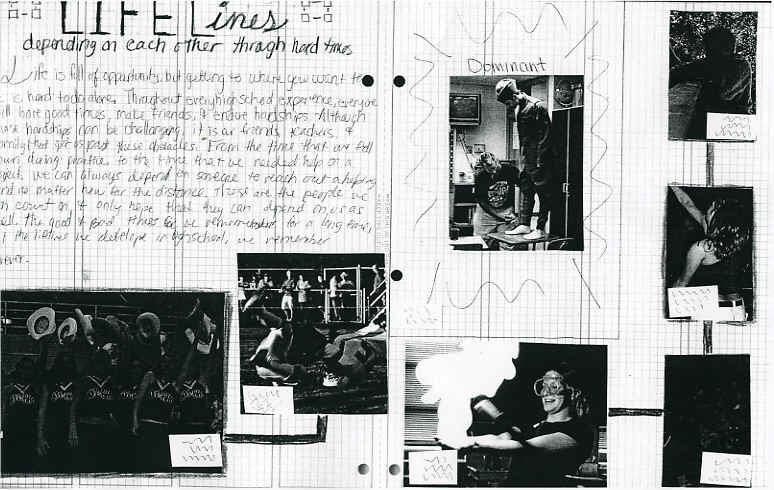 LIFE Lines
depending on each other through hard times
Life is full of opportunity, but getting to where you want to
is hard to do alone. Throughout every high school experience, everyone
will have good times, make friends, & endure hardships. Although
hardships can be challenging, it is our friends, teachers, &
family that get us past these obstacles. From the time that we fall
down during practice to the time that we needed help on a
we can always depend on someone to reach out a helping
no matter how far the distance. These are the people we
can count on, & only hope that they can depend on us as
well. The good & bad times we remember for a long time,
the lifelines we develope in highschool, we remember
forever.
Dominant